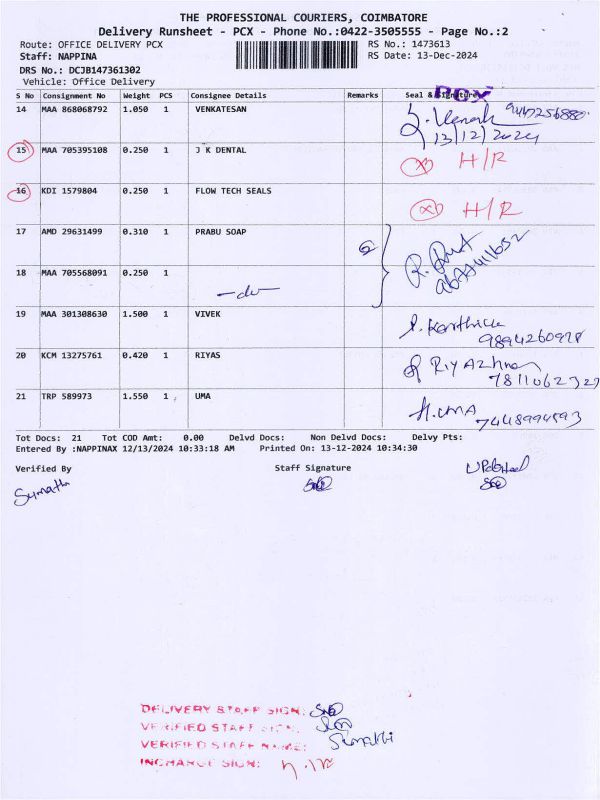 THE PROFESSIONAL COURIERS, COIMBATORE
Delivery Runsheet - PCX - Phone No.:0422-3505555 - Page No.:2
Route: OFFICE DELIVERY PCX RS No.: 1473613
Staff: NAPPINA RS Date: 13-Dec-2024
DRS No.: DCJB147361302
Vehicle: Office Delivery
PCX
S No Consignment No Weight PCS Consignee Details Remarks Seal & Signature
14 MAA 868068792 1.050 1 VENKATESAN
13/12/2024
15 MAA 705395108 0.250 1 J K DENTAL H/R
16 KDI 1579804 0.250 1 FLOW TECH SEALS H/R
17 AMD 29631499 0.310 1 PRABU SOAP
18 MAA 705568091 0.250 1 -do-
19 MAA 301308630 1.500 1 VIVEK
9894260978
20 KCM 13275761 0.420 1 RIYAS
21 TRP 589973 1.550 1 UMA H.UMA
Tot Docs: 21 Tot COD Amt: 0.00 Delvd Docs: Non Delvd Docs: Delvy Pts:
Entered By :NAPPINAX 12/13/2024 10:33:18 AM Printed On: 13-12-2024 10:34:30
Verified By Staff Signature Updated
Sumathi
DELIVERY STAFF SIGN:
VERIFIED STAFF SIGN:
VERIFIED STAFF NAME: Sumathi
INCHARGE SIGN: